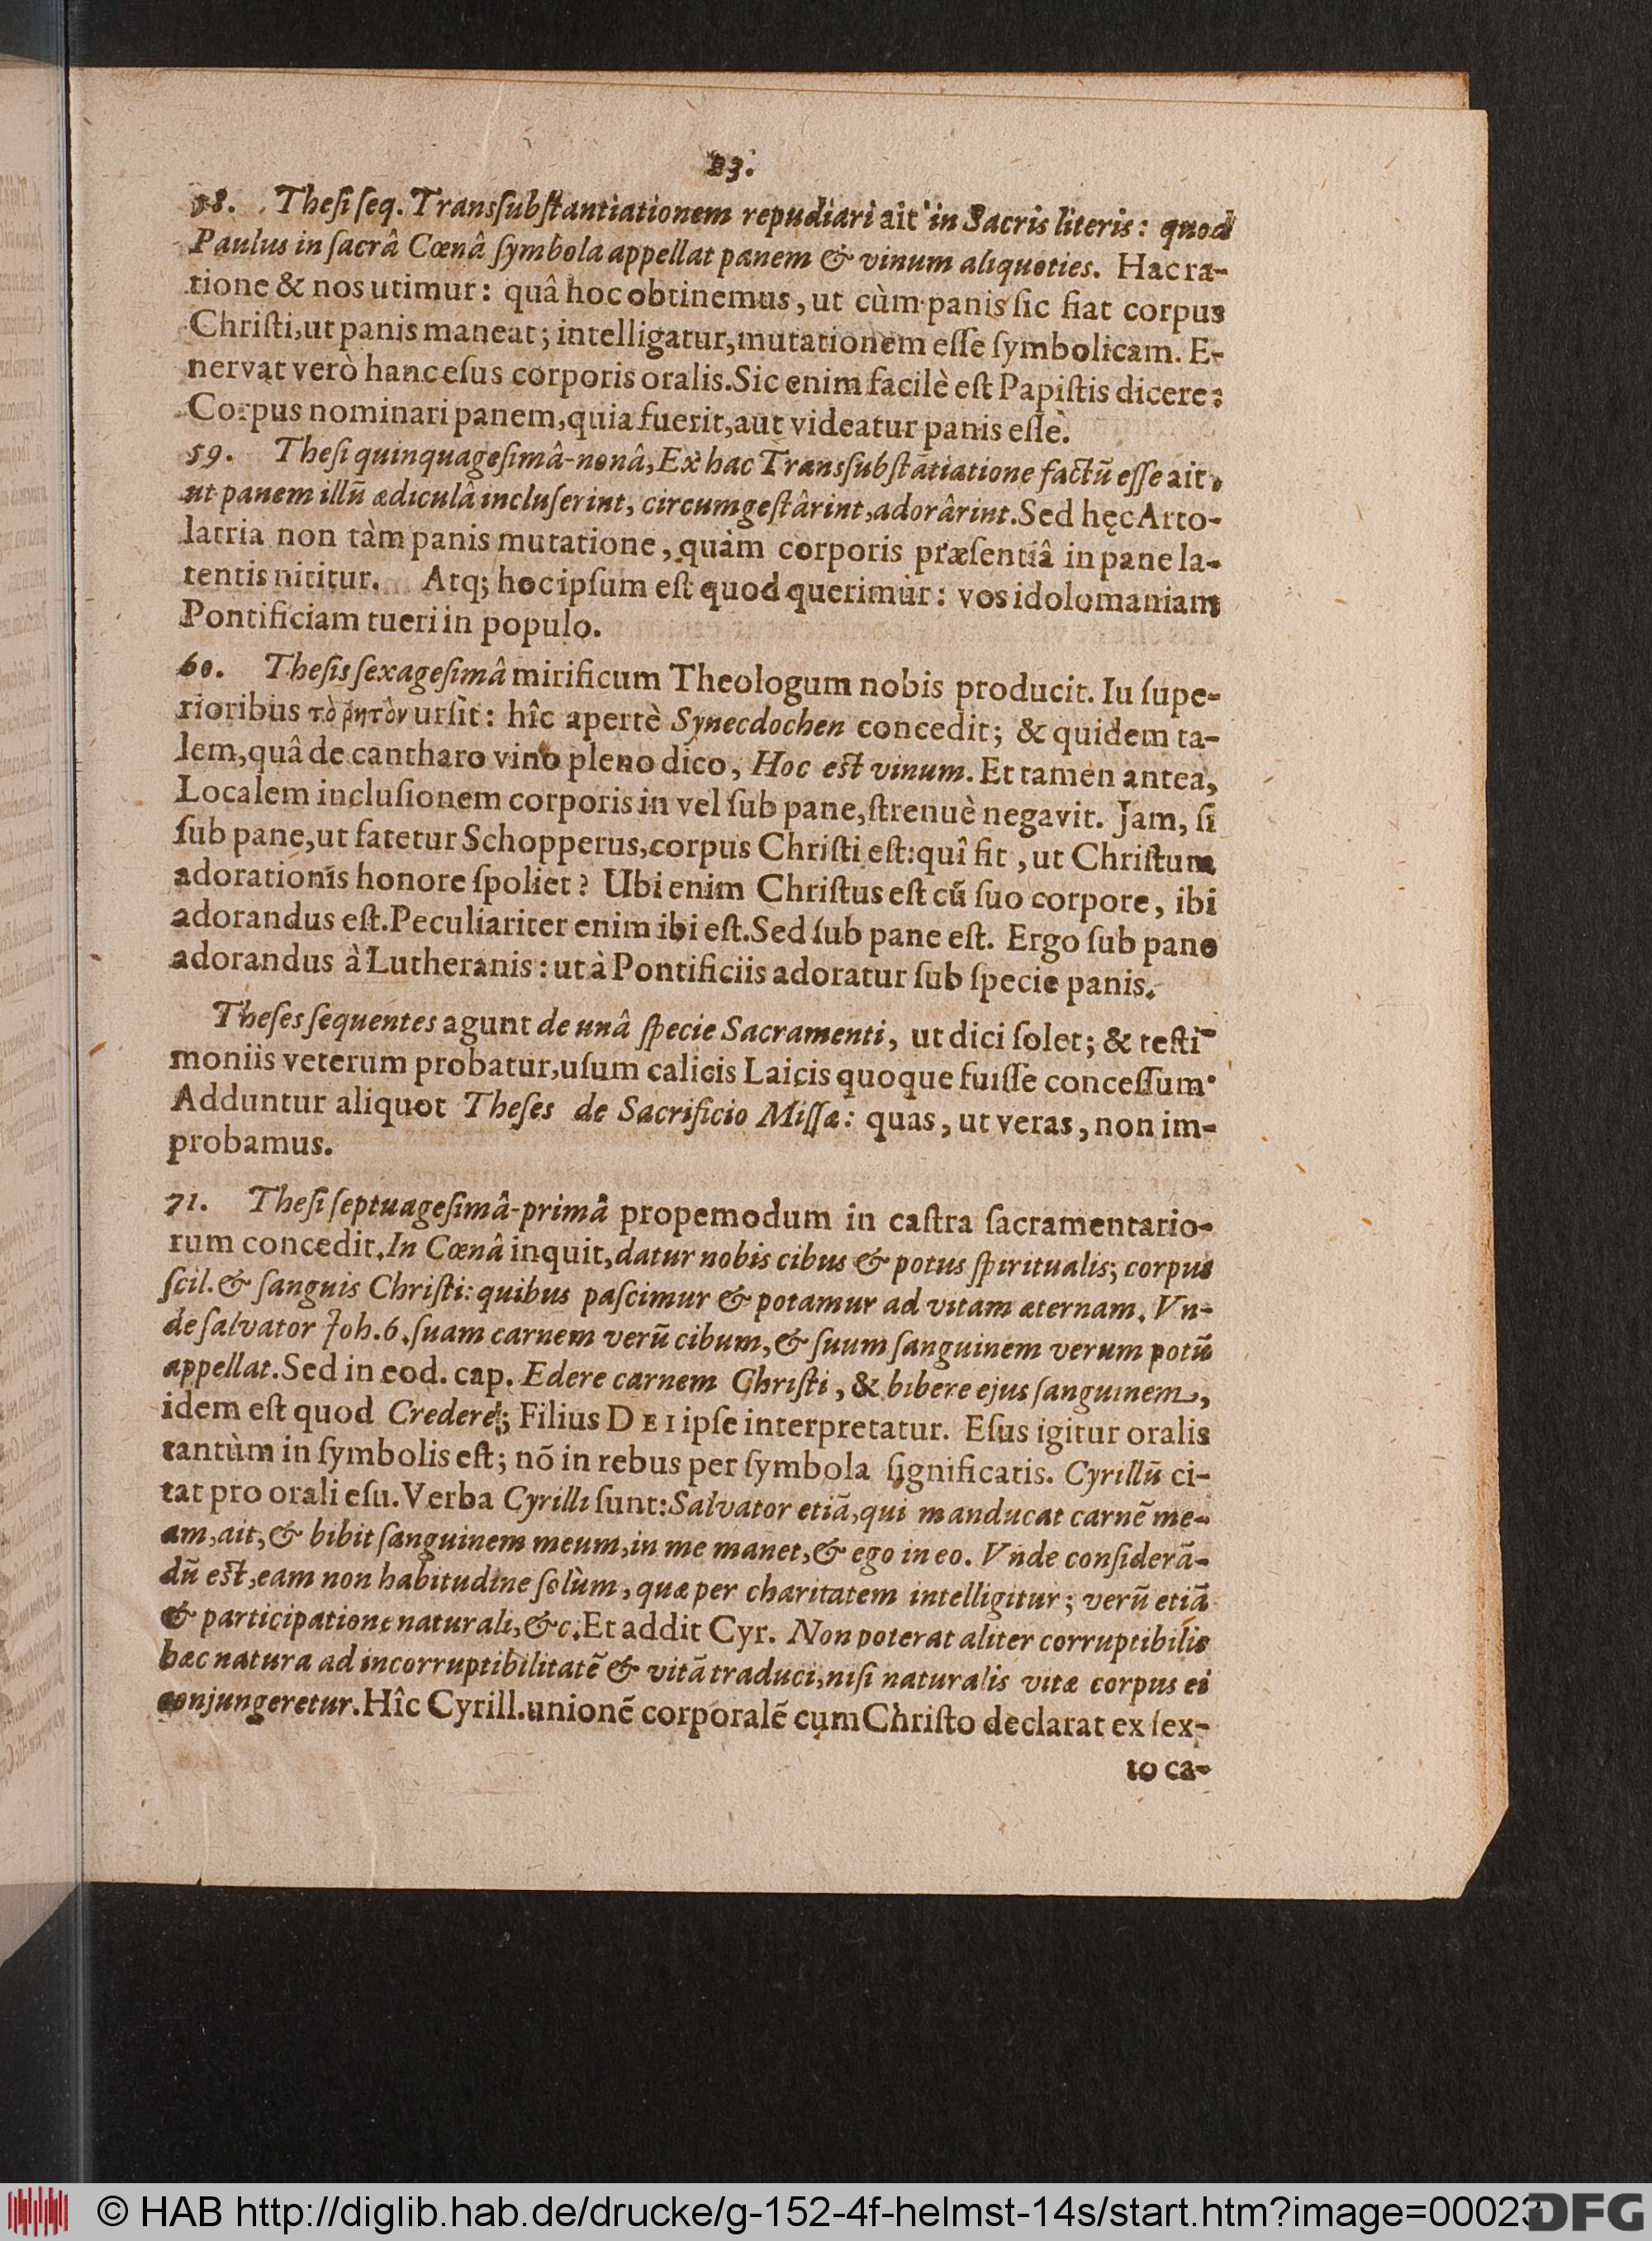 23.
58. Theſi ſeq. Transſubſtantiationem repudiari ait in Sacris literis: quod
Paulus in ſacrâ Cœnâ ſymbola appellat panem & vinum aliquoties. Hac ra-
tione & nos utimur: quâ hoc obtinemus, ut cùm panis ſic fiat corpus
Chriſti, ut panis maneat; intelligatur, mutationem eſſe ſymbolicam. E-
nervat verò hanc eſus corporis oralis. Sic enim facilè eſt Papiſtis dicere:
Corpus nominari panem, quia fuerit, aut videatur panis eſſe.
59. Theſi quinquageſimâ-nonâ, Ex hac Transſubſtātiatione factũ eſſe ait,
ut panem illũ ædiculâ incluſerint, circumgeſtârint, adorârint. Sed hęc Arto-
latria non tàm panis mutatione, quàm corporis præſentiâ in pane la-
tentis nititur. Atq; hoc ipſum eſt quod querimur: vos idolomaniam
Pontificiam tueri in populo.
60. Theſis ſexageſimâ mirificum Theologum nobis producit. Iu ſupe-
rioribus τὸ ῥητὸν urſit: hîc apertè Synecdochen concedit; & quidem ta-
lem, quâ de cantharo vino pleno dico, Hoc eſt vinum. Et tamen antea,
Localem incluſionem corporis in vel ſub pane, ſtrenuè negavit. Jam, ſi
ſub pane, ut fatetur Schopperus, corpus Chriſti eſt: quî fit, ut Chriſtum
adorationis honore ſpoliet? Ubi enim Chriſtus eſt cũ ſuo corpore, ibi
adorandus eſt. Peculiariter enim ibi eſt. Sed ſub pane eſt. Ergo ſub pane
adorandus à Lutheranis: ut à Pontificiis adoratur ſub ſpecie panis.
Theſes ſequentes agunt de unâ ſpecie Sacramenti, ut dici ſolet; & teſti-
moniis veterum probatur, uſum calicis Laicis quoque fuiſſe conceſſum.
Adduntur aliquot Theſes de Sacrificio Miſſæ: quas, ut veras, non im-
probamus.
71. Theſi ſeptuageſimâ-primâ propemodum in caſtra ſacramentario-
rum concedit. In Cœnâ inquit, datur nobis cibus & potus ſpiritualis; corpus
ſcil. & ſanguis Chriſti: quibus paſcimur & potamur ad vitam æternam. Vn-
de ſalvator Joh. 6. ſuam carnem verũ cibum, & ſuum ſanguinem verum potũ
appellat. Sed in eod. cap. Edere carnem Chriſti, & bibere ejus ſanguinem,
idem eſt quod Credere; Filius DEI ipſe interpretatur. Eſus igitur oralis
tantùm in ſymbolis eſt; nõ in rebus per ſymbola ſignificatis. Cyrillũ ci-
tat pro orali eſu. Verba Cyrilli ſunt: Salvator etiã, qui manducat carnẽ me-
am, ait, & bibit ſanguinem meum, in me manet, & ego in eo. Vnde conſiderã-
dũ eſt, eam non habitudine ſolùm, quæ per charitatem intelligitur; verũ etiã
& participatione naturali, &c. Et addit Cyr. Non poterat aliter corruptibilis
hæc natura ad incorruptibilitatẽ & vitã traduci, niſi naturalis vitæ corpus ei
conjungeretur. Hîc Cyrill. unionẽ corporalẽ cum Chriſto declarat ex ſex-
to ca-
© HAB http://diglib.hab.de/drucke/g-152-4f-helmst-14s/start.htm?image=00023
DFG